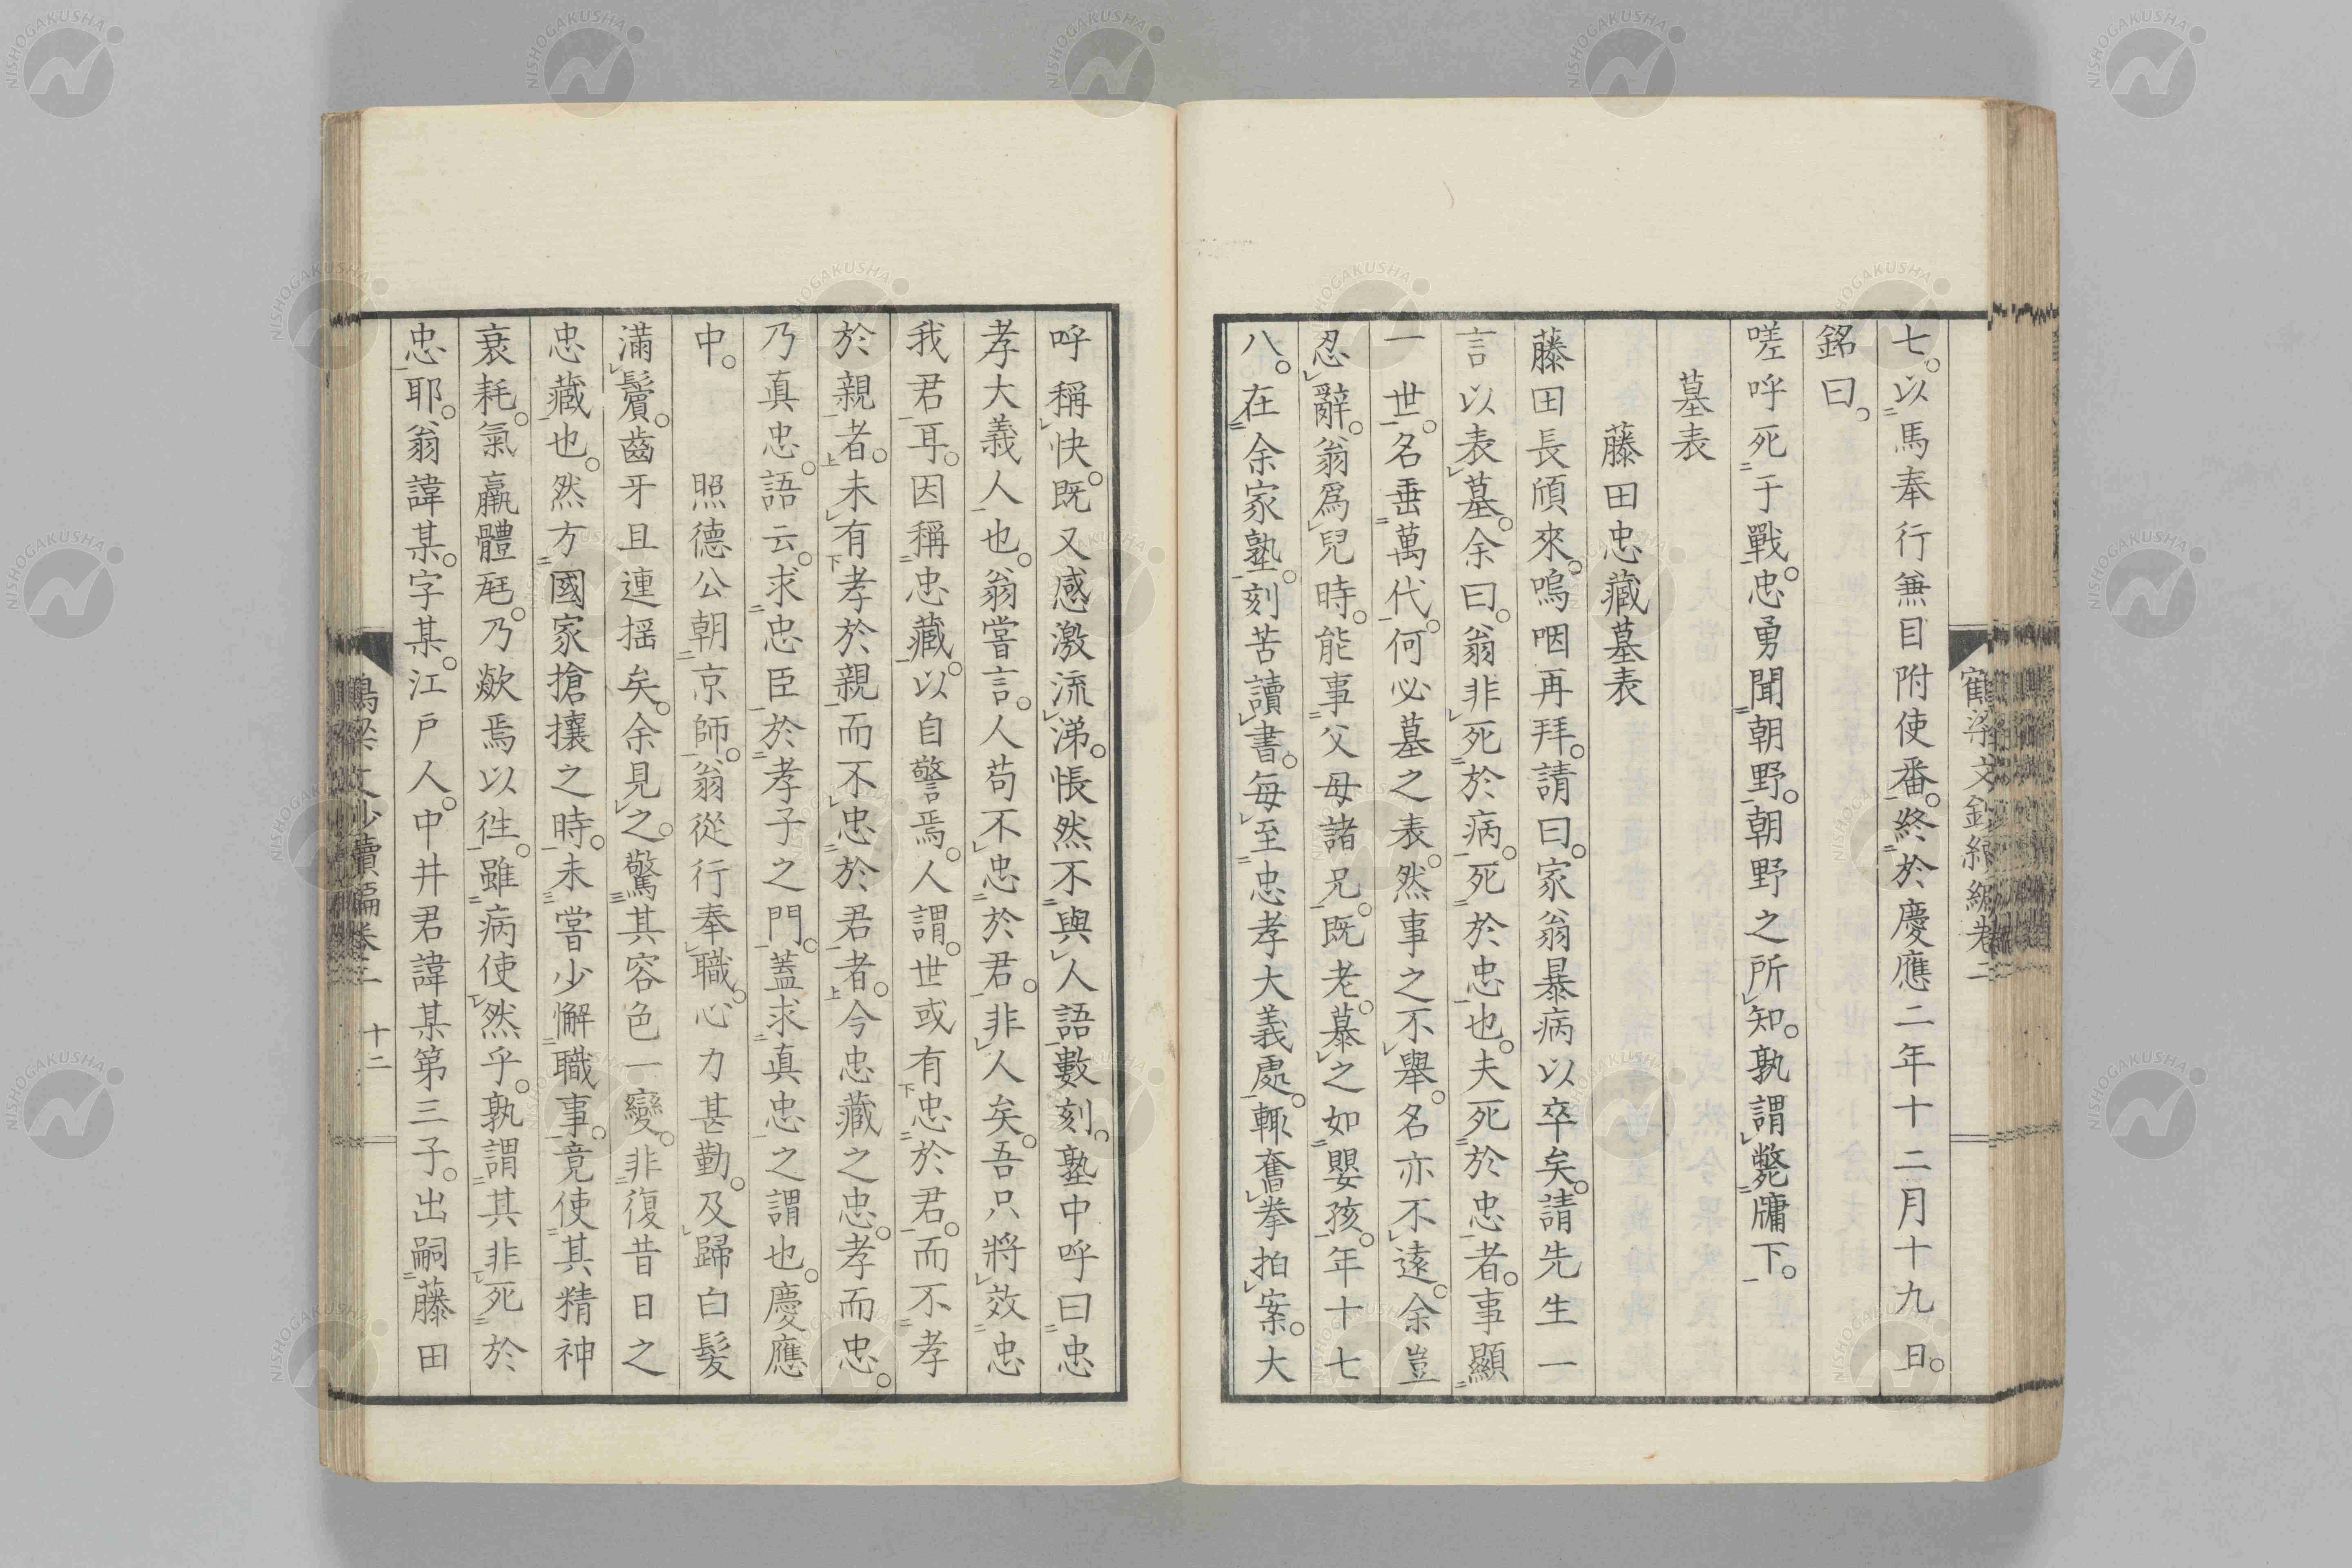 七。以馬奉行兼目附使番。終於慶應二年十二月十九日。
銘曰。
嗟呼死于戰。忠勇聞朝野。朝野之所知。孰謂斃牖下。
墓表
藤田忠藏墓表
藤田長頎來。嗚咽再拜。請曰。家翁暴病以卒矣。請先生一
言以表墓。余曰。翁非死於病。死於忠也。夫死於忠者。事顯
一世。名垂萬代。何必墓之表。然事之不舉。名亦不遠。余豈
忍辭。翁爲兒時。能事父母諸兄。既老。慕之如嬰孩。年十七
八。在余家塾。刻苦讀書。每至忠孝大義處。輙奮拳拍案。大
呼稱快。既又感激流涕。悵然不與人語數刻。塾中呼曰忠
孝大義人也。翁嘗言。人苟不忠於君。非人矣。吾只將效忠
我君耳。因稱忠藏。以自警焉。人謂。世或有忠於君。而不孝
於親者。未有孝於親而不忠於君者。今忠藏之忠。孝而忠。
乃真忠。語云。求忠臣於孝子之門。蓋求真忠之謂也。慶應
中。 照德公朝京師。翁從行奉職。心力甚勤。及歸白髮
滿鬢。齒牙且連揺矣。余見之。驚其容色一變。非復昔日之
忠藏也。然方國家搶攘之時。未嘗少懈職事。竟使其精神
衰耗。氣羸體㲠。乃歘焉以徃。雖病使然乎。孰謂其非死於
忠耶。翁諱某。字某。江戶人。中井君諱某第三子。出嗣藤田
鶴梁文鈔續編卷二
十二